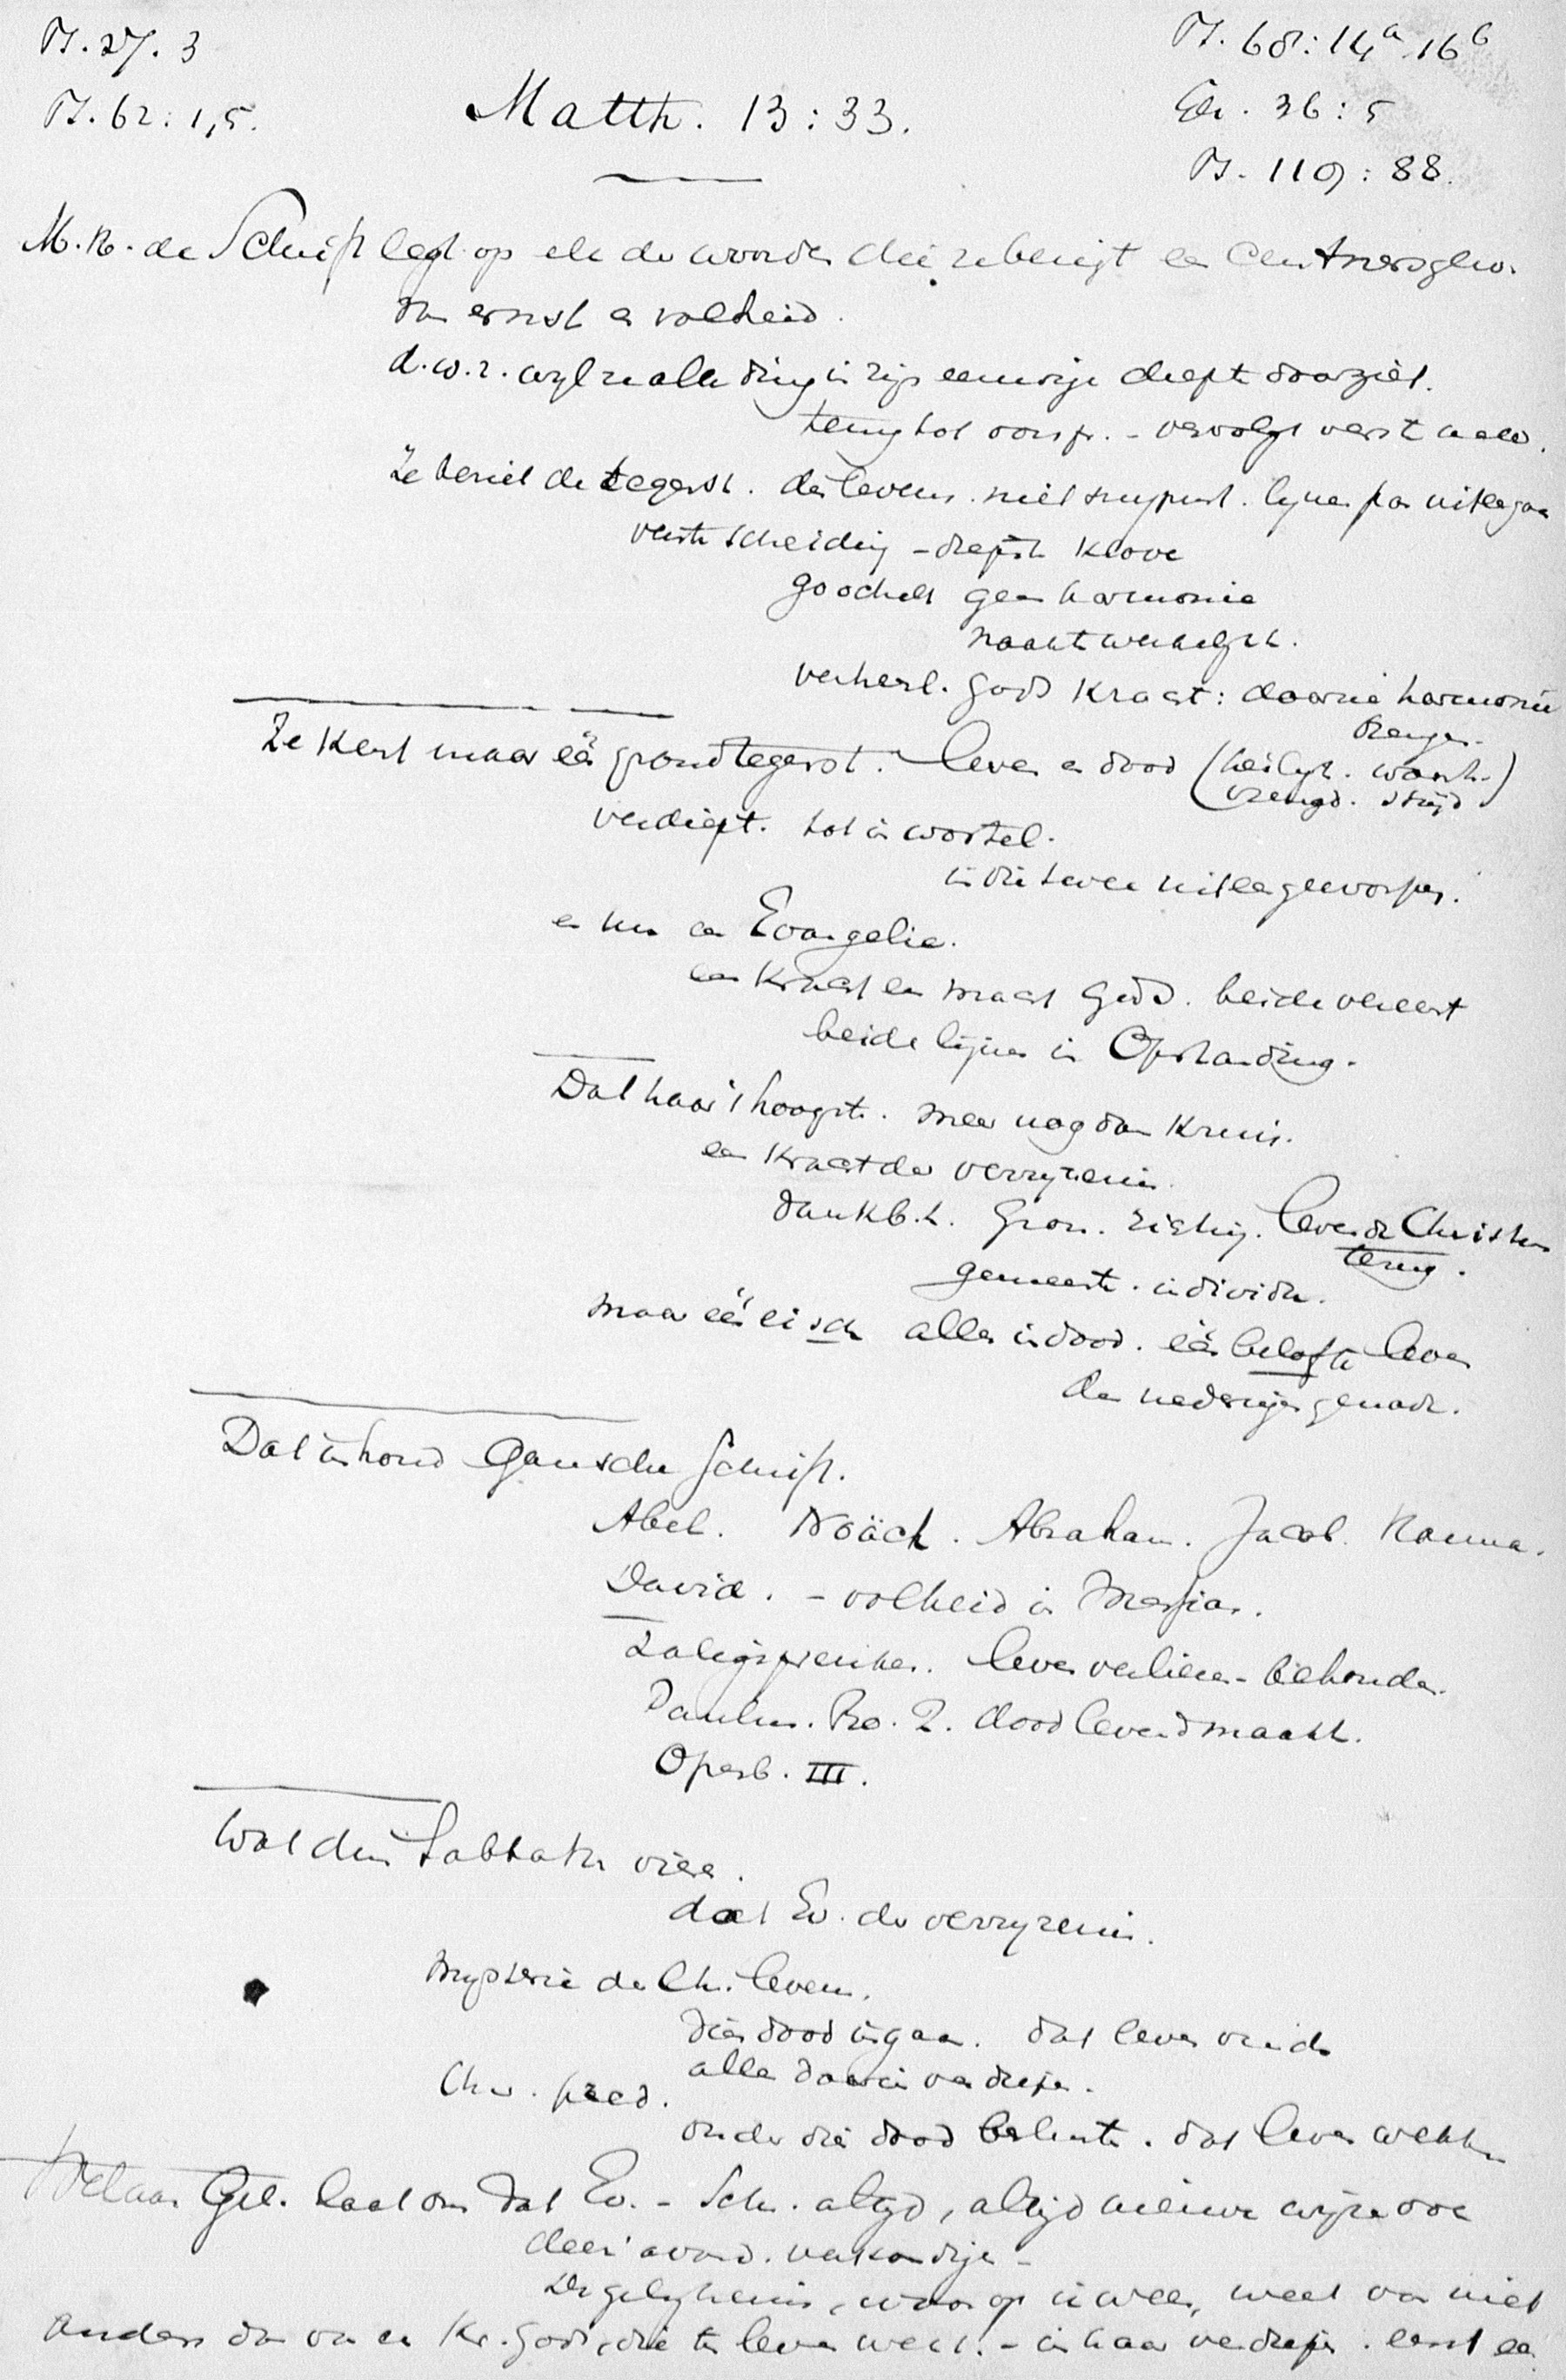 Ps. 27. 3
Ps. 62 : 1,5.
Matth. 13 : 33.
Ps. 68 : 14a 16b
Gez. 36 : 5
Ps. 119 : 88.
M. H. de Schrift legt op elk der woorden die ze bezigt een
van ernst en volheid.
d.w.z. wyl ze alle ding in zijn eeuwige diepte doorziet.
terug tot oorspr. - vervolgt verst
Ze beziet de tegenst. des levens. niet lynen pas uiteegaan
verste scheiding - diepste klove
goochelt geen harmonie
naakte werkelijkh.
verheerl. Gods kracht: daarin harmonie
brengen.
Ze kent maar één grondtegenst. leven en dood (heiligh. waarh.)
vreugd. strijd
verdiept. tot in wortel.
in die twee uiteengeworpen.
en nu een Evangelie.
een kracht en macht Gods. beide vereent
beide lijnen in Opstanding.
Dat haar 't hoogste. meer nog dan Kruis.
een kracht der verryzenis.
dankb.h. Gron. richting. levende Christus
terug.
gemeente. individu.
maar één eisch alles in dood. één belofte leven
den nedrigen genade.
Dat inhoud gansche Schrift.
Abel. Noäch. Abraham. Jacob. Hanna.
David. - volheid in Messias.
Zaligspreuken. leven verliezen - behouden.
Paulus. Ro. 2. dood levend maakt.
Openb. III.
Wat den Sabbath vieren.
dat Ev. der verryzenis.
mysterie der Ch. leven.
dien dood ingaan. dat leven vinden
alles daarin verdiepen.
Chr. pred.
onder dien dood besluiten. dat leven wekken
Welaan Gel. laat ons dat Ev. - Sch. altyd, altijd nieuwe wijze ook
dezen avond. verkondigen -
De gelykenis, waarop ik wees, weet van niet
anders dan van een Kr. Gods, die ten leven wekt. - in haar verdiepen. eerst een